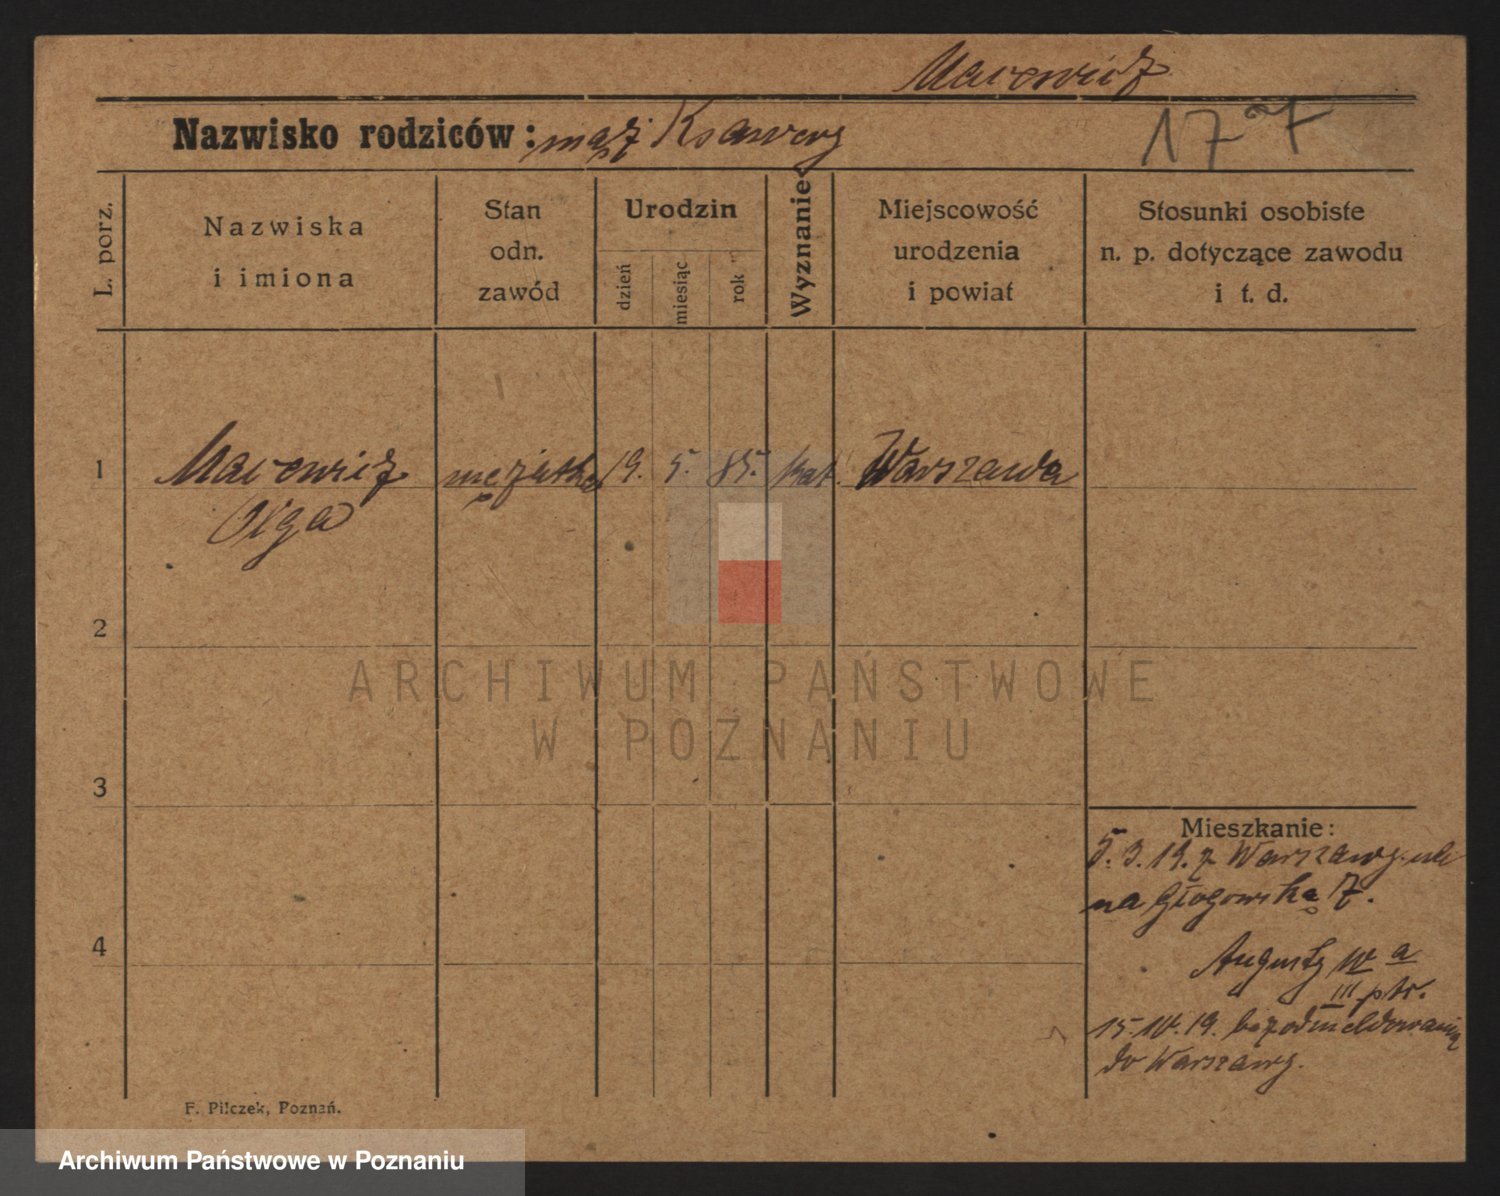 Macewicz
Nazwisko rodziców: mąż Ksawery
17
L. porz.
Nazwiska
i imiona
Stan
odn.
zawód
Urodzin
dzień
miesiąc
rok
Wyznanie
Miejscowość
urodzenia
i powiat
Stosunki osobiste
n. p. dotyczące zawodu
i t. d.
1
Macewicz
Olga
mężatka
19.
5.
85.
kat.
Warszawa
2
3
4
Mieszkanie:
5.3.19. z Warszawy
na Głogowska 7.
Augusty
III ptr.
15.IV.19. bezodmeldowania
do Warszawy.
F. Pilczek, Poznań.
ARCHIWUM PAŃSTWOWE
W POZNANIU
Archiwum Państwowe w Poznaniu